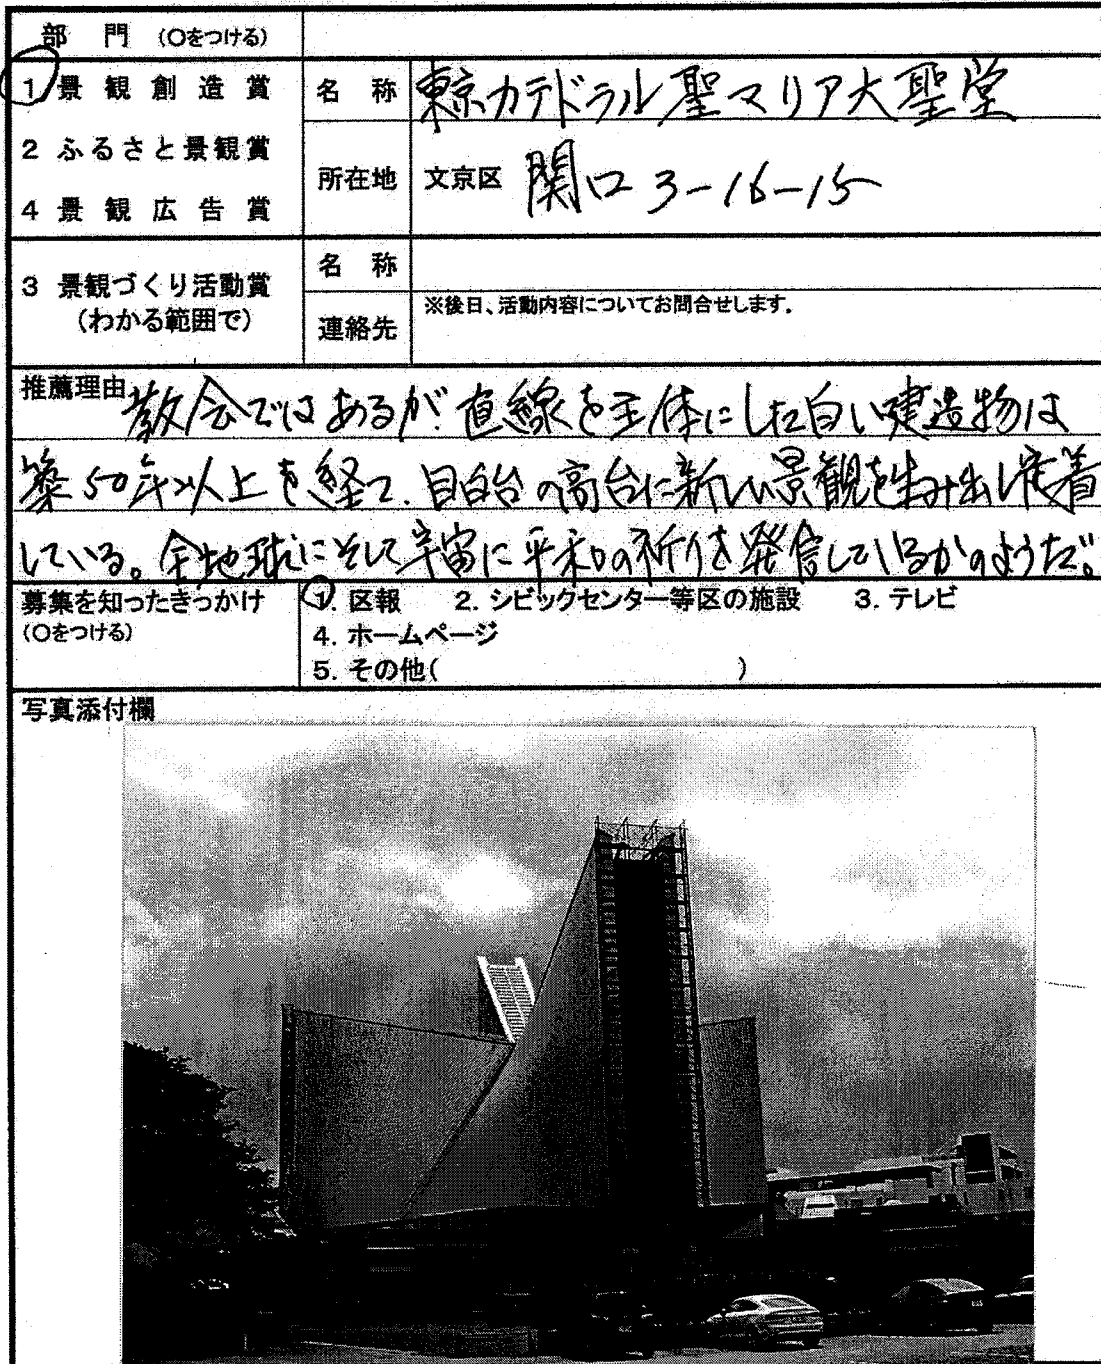 部 門 (○をつける)
1 景観創造賞
名 称 東京カテドラル聖マリア大聖堂
2 ふるさと景観賞
所在地 文京区 関口3-16-15
4 景観広告賞
3 景観づくり活動賞
(わかる範囲で)
名 称
連絡先 ※後日、活動内容についてお問合せします。
推薦理由 教会ではあるが、直線を主体にした白い建造物は
築50年以上を経て、目白台の高台に新しい景観を生み出し定着
している。全地球にそして宇宙に平和の祈りを発信しているかのようだ。
募集を知ったきっかけ
(○をつける)
1. 区報 2. シビックセンター等区の施設 3. テレビ
4. ホームページ
5. その他( )
写真添付欄